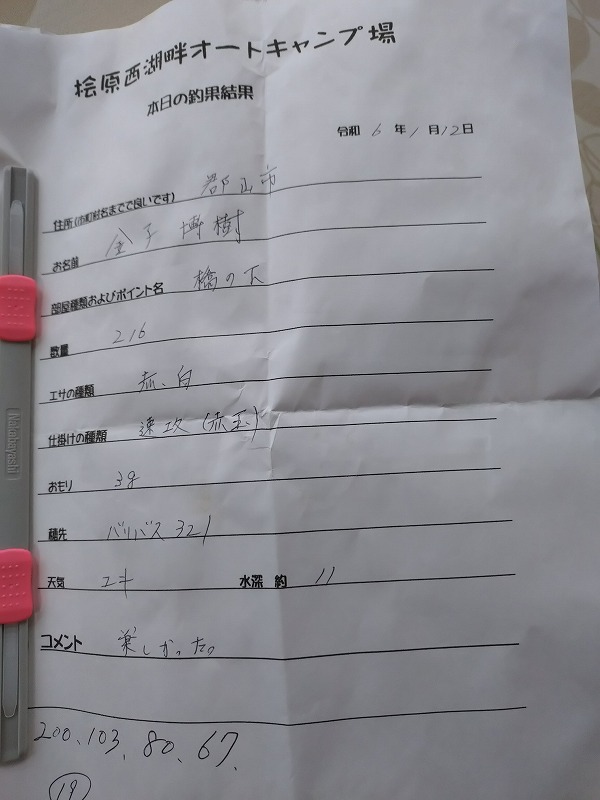 桧原西湖畔オートキャンプ場
本日の釣果結果
令和 6 年 1 月 12 日
住所(市町村名までで良いです) 郡山市
お名前 金子 博樹
部屋種類およびポイント名 橋の下
数量 216
エサの種類 赤、白
仕掛けの種類 速攻(赤玉)
おもり 3g
穂先 バリバス 321
天気 ユキ 水深 約 11
コメント 楽しかった。
200、103、80、67、
19
Nakabayashi